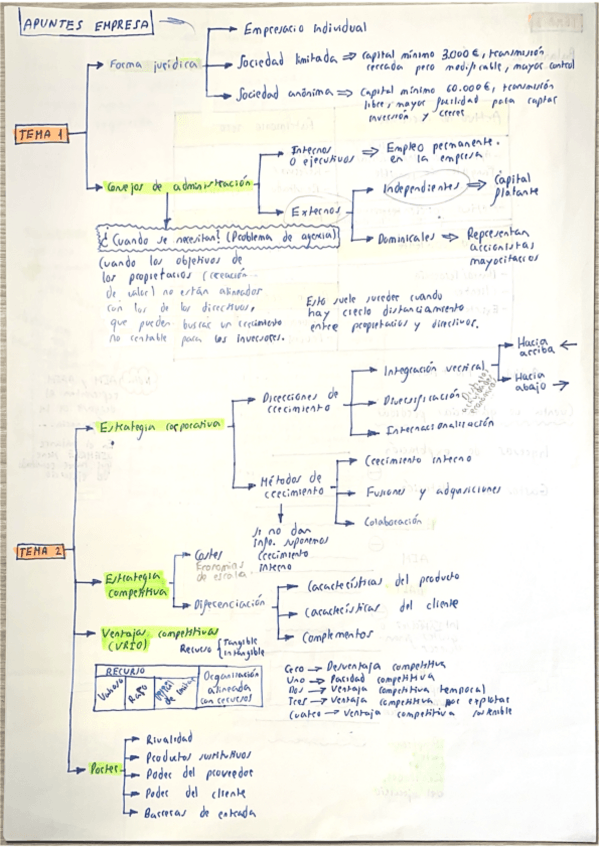 APUNTES EMPRESA
TEMA 1
Forma jurídica
Empresario individual
Sociedad limitada ⇒ capital mínimo 3.000 €, transmisión
cerrada pero modificable, mayor control
Sociedad anónima ⇒ Capital mínimo 60.000 €, transmisión
libre, mayor facilidad para captar
inversión y crecer
Consejos de administración
Internos
O ejecutivos
⇒ Empleo permanente.
en la empresa
Externos
Independientes ⇒ Capital
flotante
Dominicales ⇒ Representan
accionistas
mayoritarios
¿Cuando se necesitan? (Problema de agencia)
Cuando los objetivos de
los propietarios (creación
de valor) no están alineados
con los de los directivos,
que pueden buscar un crecimiento
no rentable para los inversores.
Esto suele suceder cuando
hay cierto distanciamiento
entre propietarios y directivos.
TEMA 2
Estrategia corporativa
Direcciones de
crecimiento
Integración vertical
Hacia
arriba ←
Hacia
abajo →
Diversificación
Internacionalización
Métodos de
crecimiento
Crecimiento interno
Fusiones y adqosiciones
Colaboración
Si no dan
info. suponemos
crecimiento
interno
Estrategia
competitiva
Costes
Economías
de escala
Diferenciación
Características del producto
Características del cliente
Complementos
Ventajas competitivas
(VRIO)
Recurso { Tangible
Intangible
RECURSO
Valioso
Raro
Organización
alineada
con recursos
Cero → Desventaja competitiva
Uno → Paridad competitiva
Dos → Ventaja competitiva temporal
Tres → Ventaja competitiva por explotar
Cuatro → Ventaja competitiva sostenible
Porter
Rivalidad
Productos sustitutivos
Poder del proveedor
Poder del cliente
Barreras de entrada